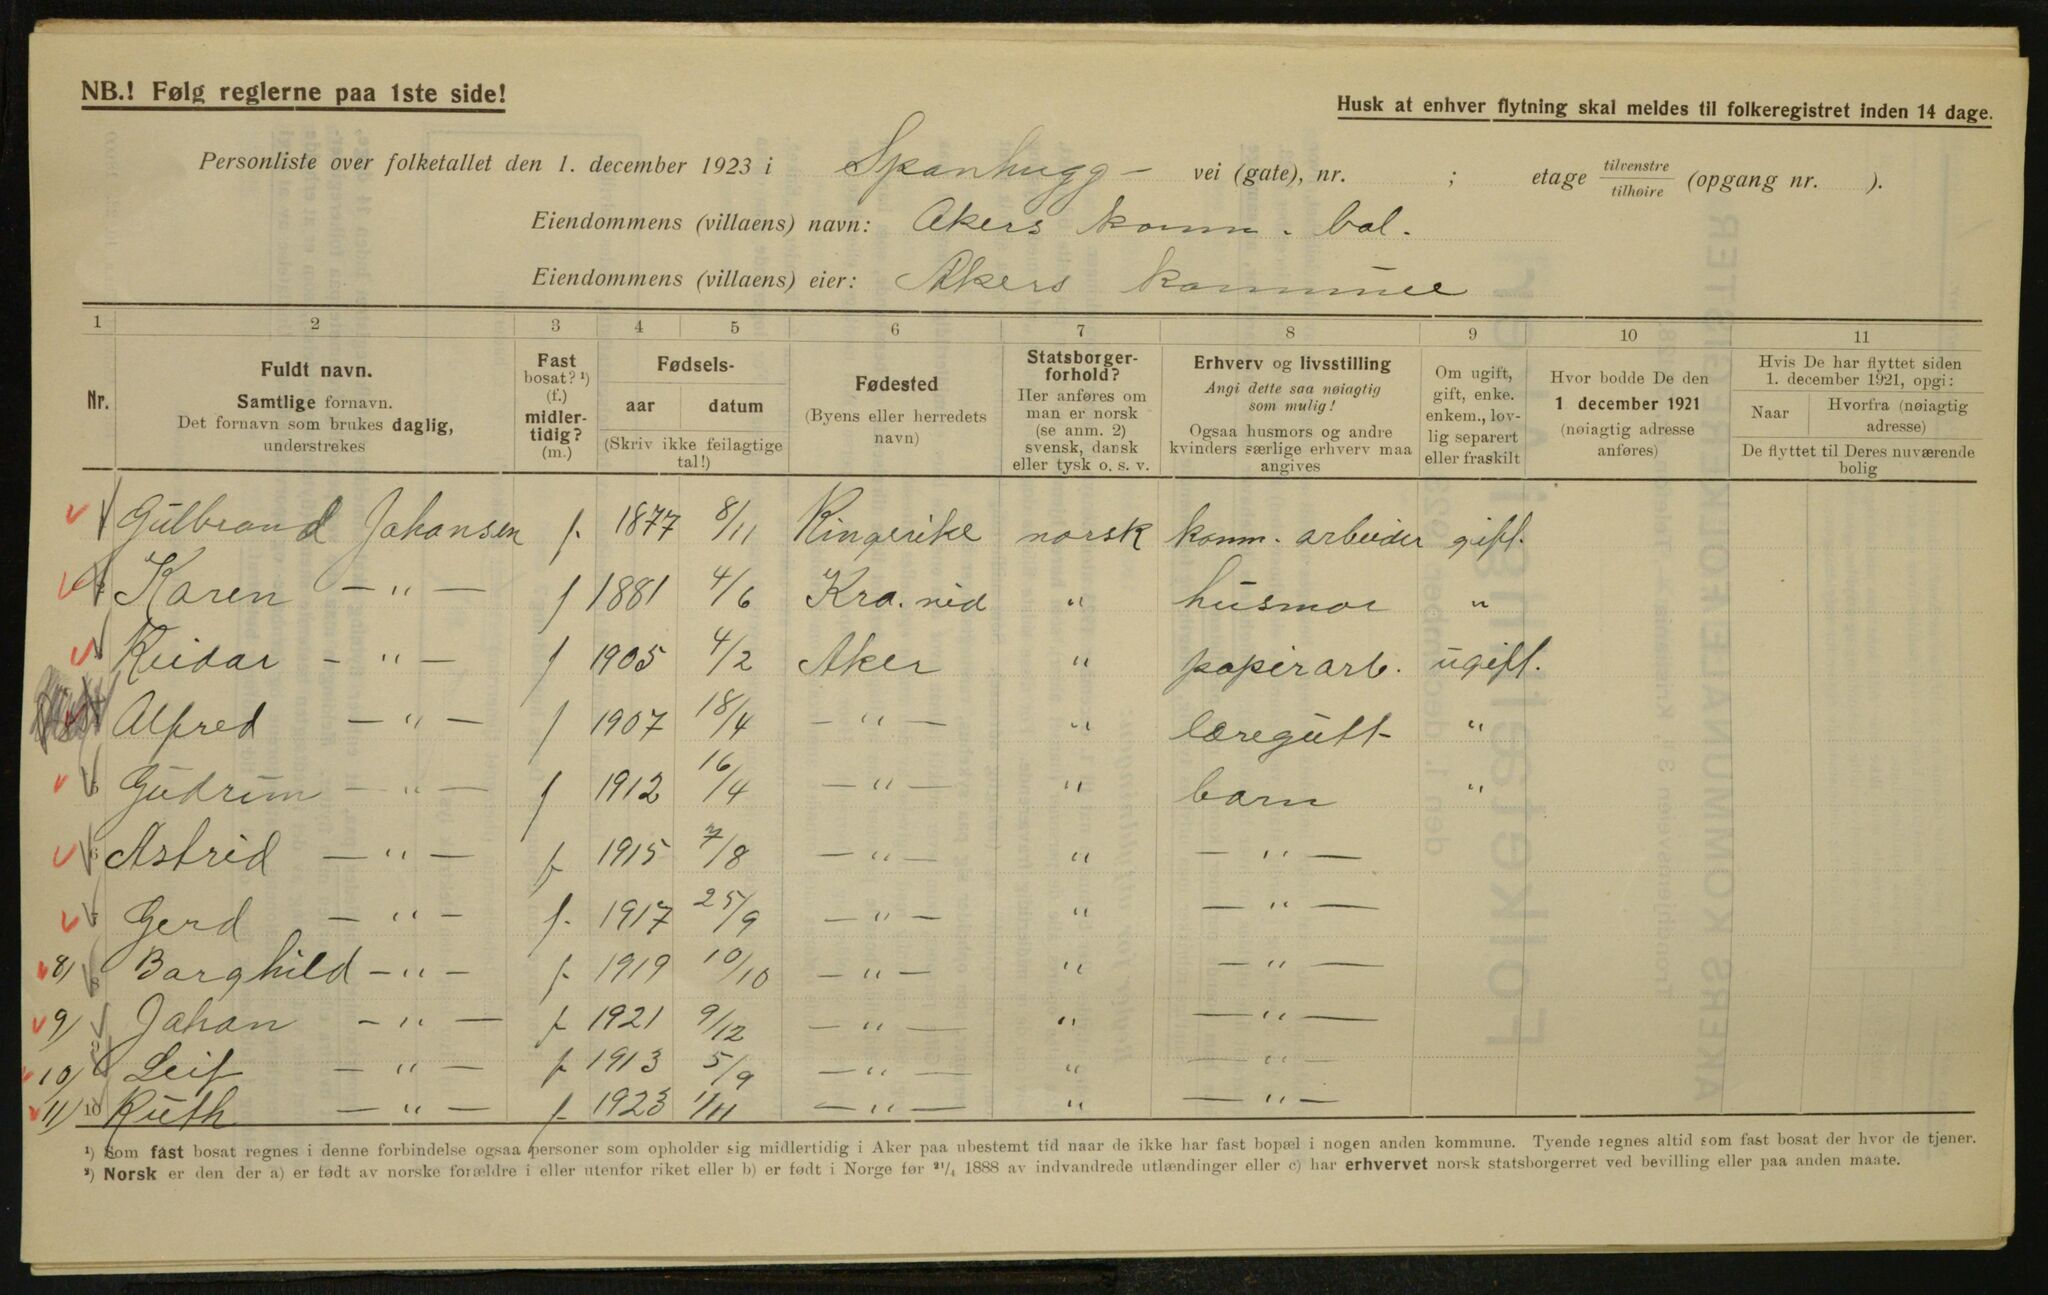 NB.! Følg reglerne paa 1ste side!
Husk at enhver flytning skal meldes til folkeregistret inden 14 dage.
Personliste over folketallet den 1. december 1923 i Spanhugg- vei (gate), nr. ; etage tilvenstre/tilhøire (opgang nr. ).
Eiendommens (villaens) navn: Akers komm. bol.
Eiendommens (villaens) eier: Akers kommune
1 2 3 4 5 6 7 8 9 10 11
Nr.
Fuldt navn.
Samtlige fornavn.
Det fornavn som brukes daglig,
understrekes
Fast
bosat? ¹)
(f.)
midler-
tidig?
(m.)
Fødsels-
aar datum
(Skriv ikke feilagtige
tal!)
Fødested
(Byens eller herredets
navn)
Statsborger-
forhold?
Her anføres om
man er norsk
(se anm. 2)
svensk, dansk
eller tysk o. s. v.
Erhverv og livsstilling
Angi dette saa nøiagtig
som mulig!
Ogsaa husmors og andre
kvinders særlige erhverv maa
angives
Om ugift,
gift, enke.
enkem., lov-
lig separert
eller fraskilt
Hvor bodde De den
1 december 1921
(nøiagtig adresse
anføres)
Hvis De har flyttet siden
1. december 1921, opgi:
Naar
Hvorfra (nøiagtig
adresse)
De flyttet til Deres nuværende
bolig
Gulbrand Johansen f. 1877 8/11 Ringerike norsk komm. arbeider gift.
Karen — „ — f 1881 4/6 Kra. „ husmor „
Reidar — „ — f 1905 4/2 Aker „ papirarb. ugift.
Alfred — „ — f 1907 18/4 — „ — „ læregutt „
5 Gudrun — „ — f 1912 16/4 — „ — „ barn „
6 Astrid — „ — f 1915 7/8 — „ — „ — „ —
7 Gerd — „ — f. 1917 25/9 — „ — „ — „ —
8) 8 Borghild — „ — f. 1919 10/10 — „ — „ — „ —
9) Johan — „ — f 1921 9/12 — „ — „ — „ —
10) Leif — „ — f 1913 5/9 — „ — „ — „ —
11) 10 Ruth — „ — f 1923 1/11 — „ — „ — „ —
¹) Som fast bosat regnes i denne forbindelse ogsaa personer som opholder sig midlertidig i Aker paa ubestemt tid naar de ikke har fast bopæl i nogen anden kommune. Tyende regnes altid som fast bosat der hvor de tjener.
²) Norsk er den der a) er født av norske forældre i eller utenfor riket eller b) er født i Norge før ²¹/₄ 1888 av indvandrede utlændinger eller c) har erhvervet norsk statsborgerret ved bevilling eller paa anden maate.